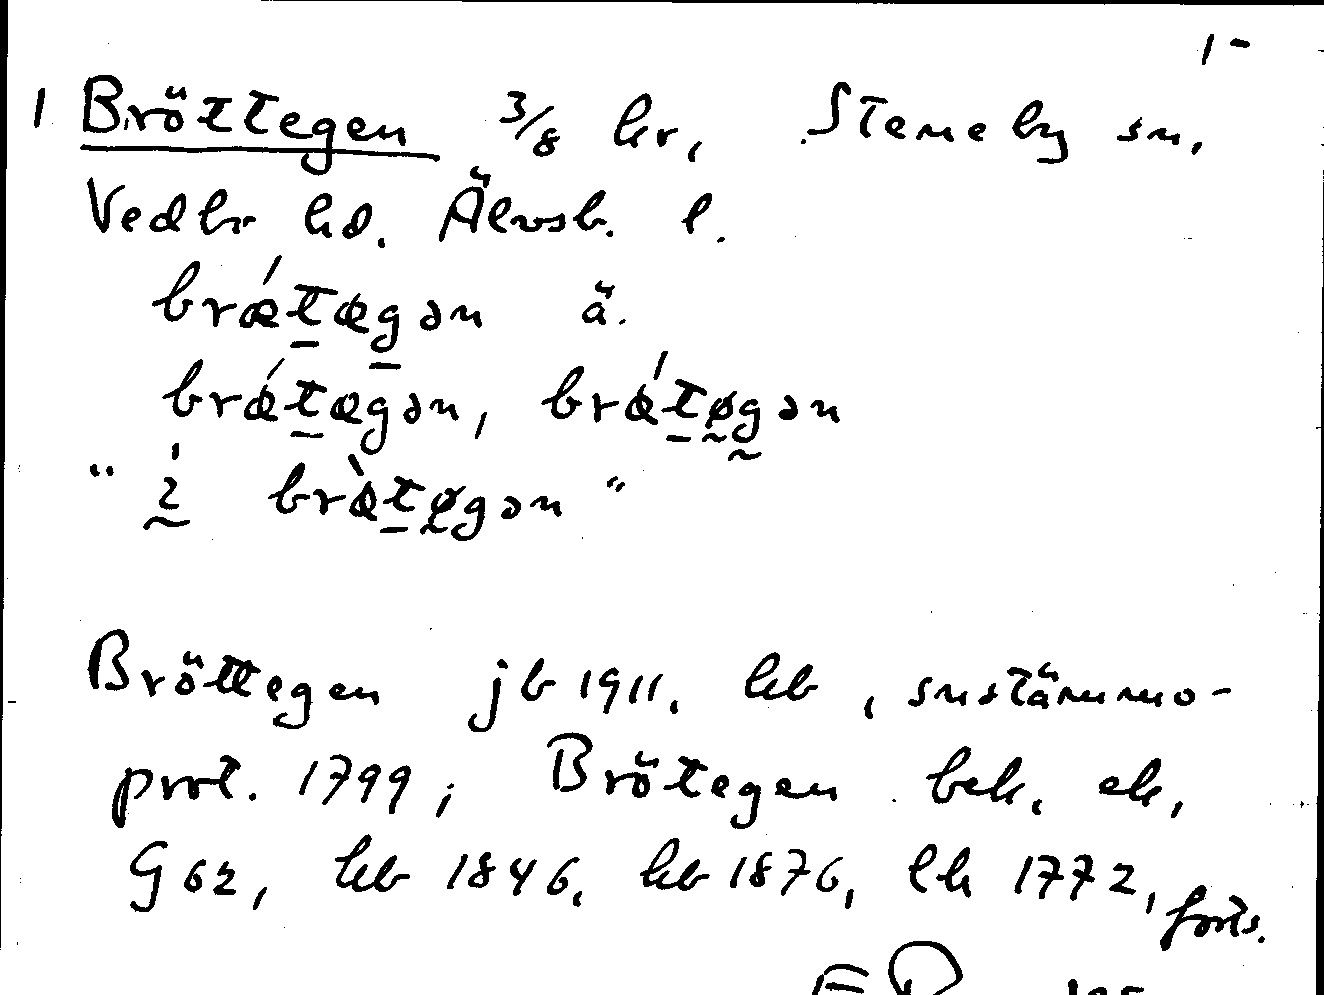 1 -
1 Bröttegen 3/8 kr, Steneby sn,
Vedbr hd. Älvsb. l.
brǽtægən ä.
brǽtægən, brǽtøgən
" í bræ̀tøgən "
Bröttegen jb 1911, kb, snstämmo-
prot. 1799; Brötegen bek. ek,
G 62, kb 1846, kb 1876, lh 1772, forts.